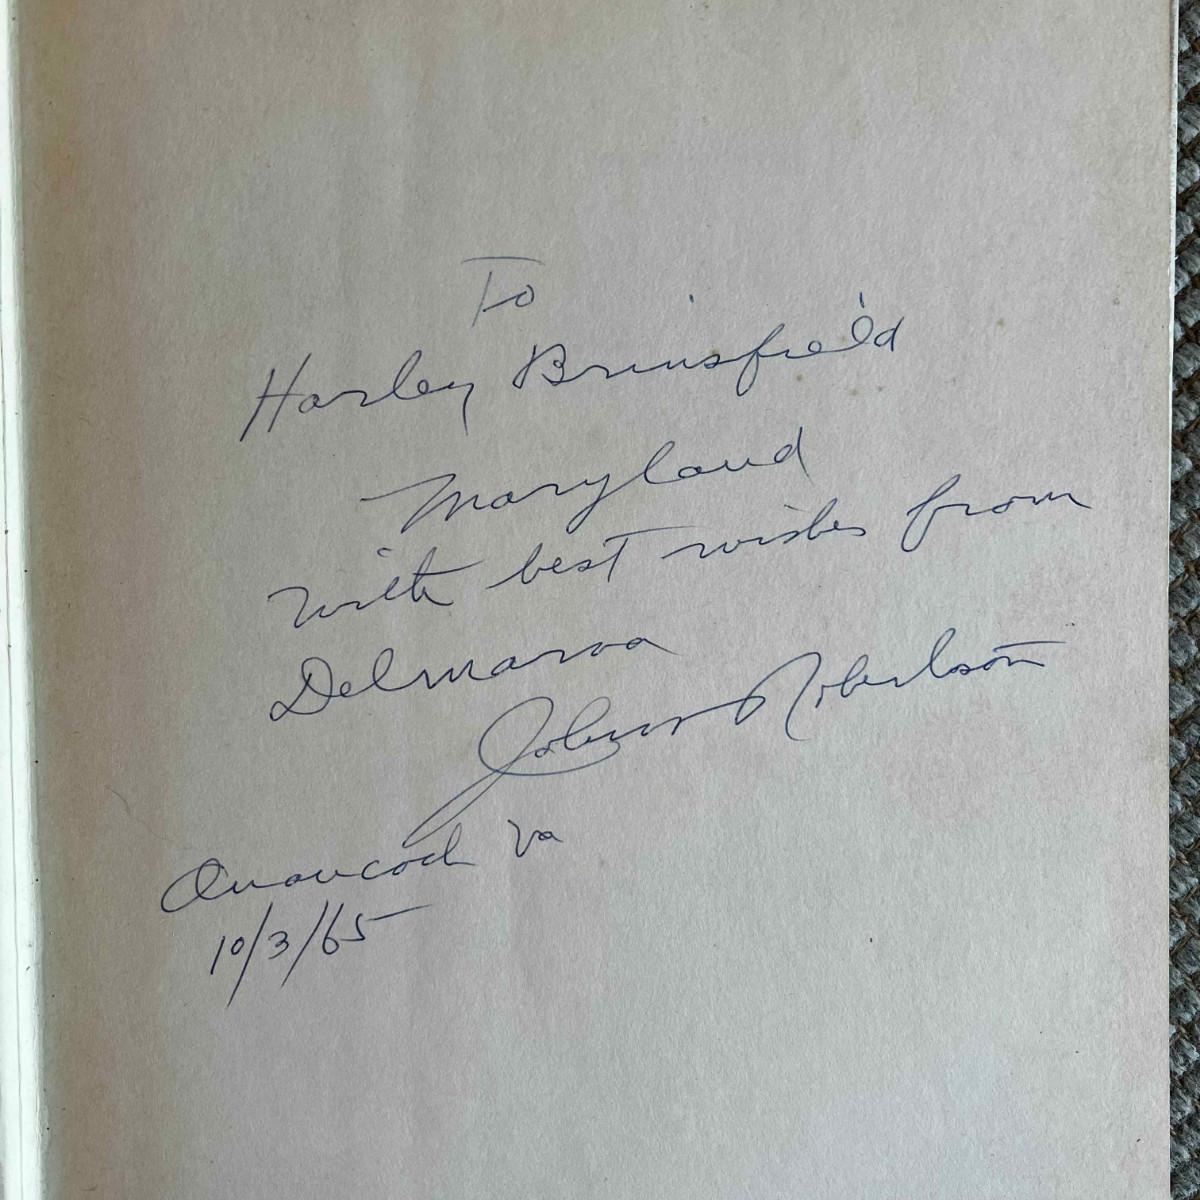 To
Harley Brinsfield
Maryland
with best wishes from
Delmarva
Robertson
Onancock Va
10/3/65